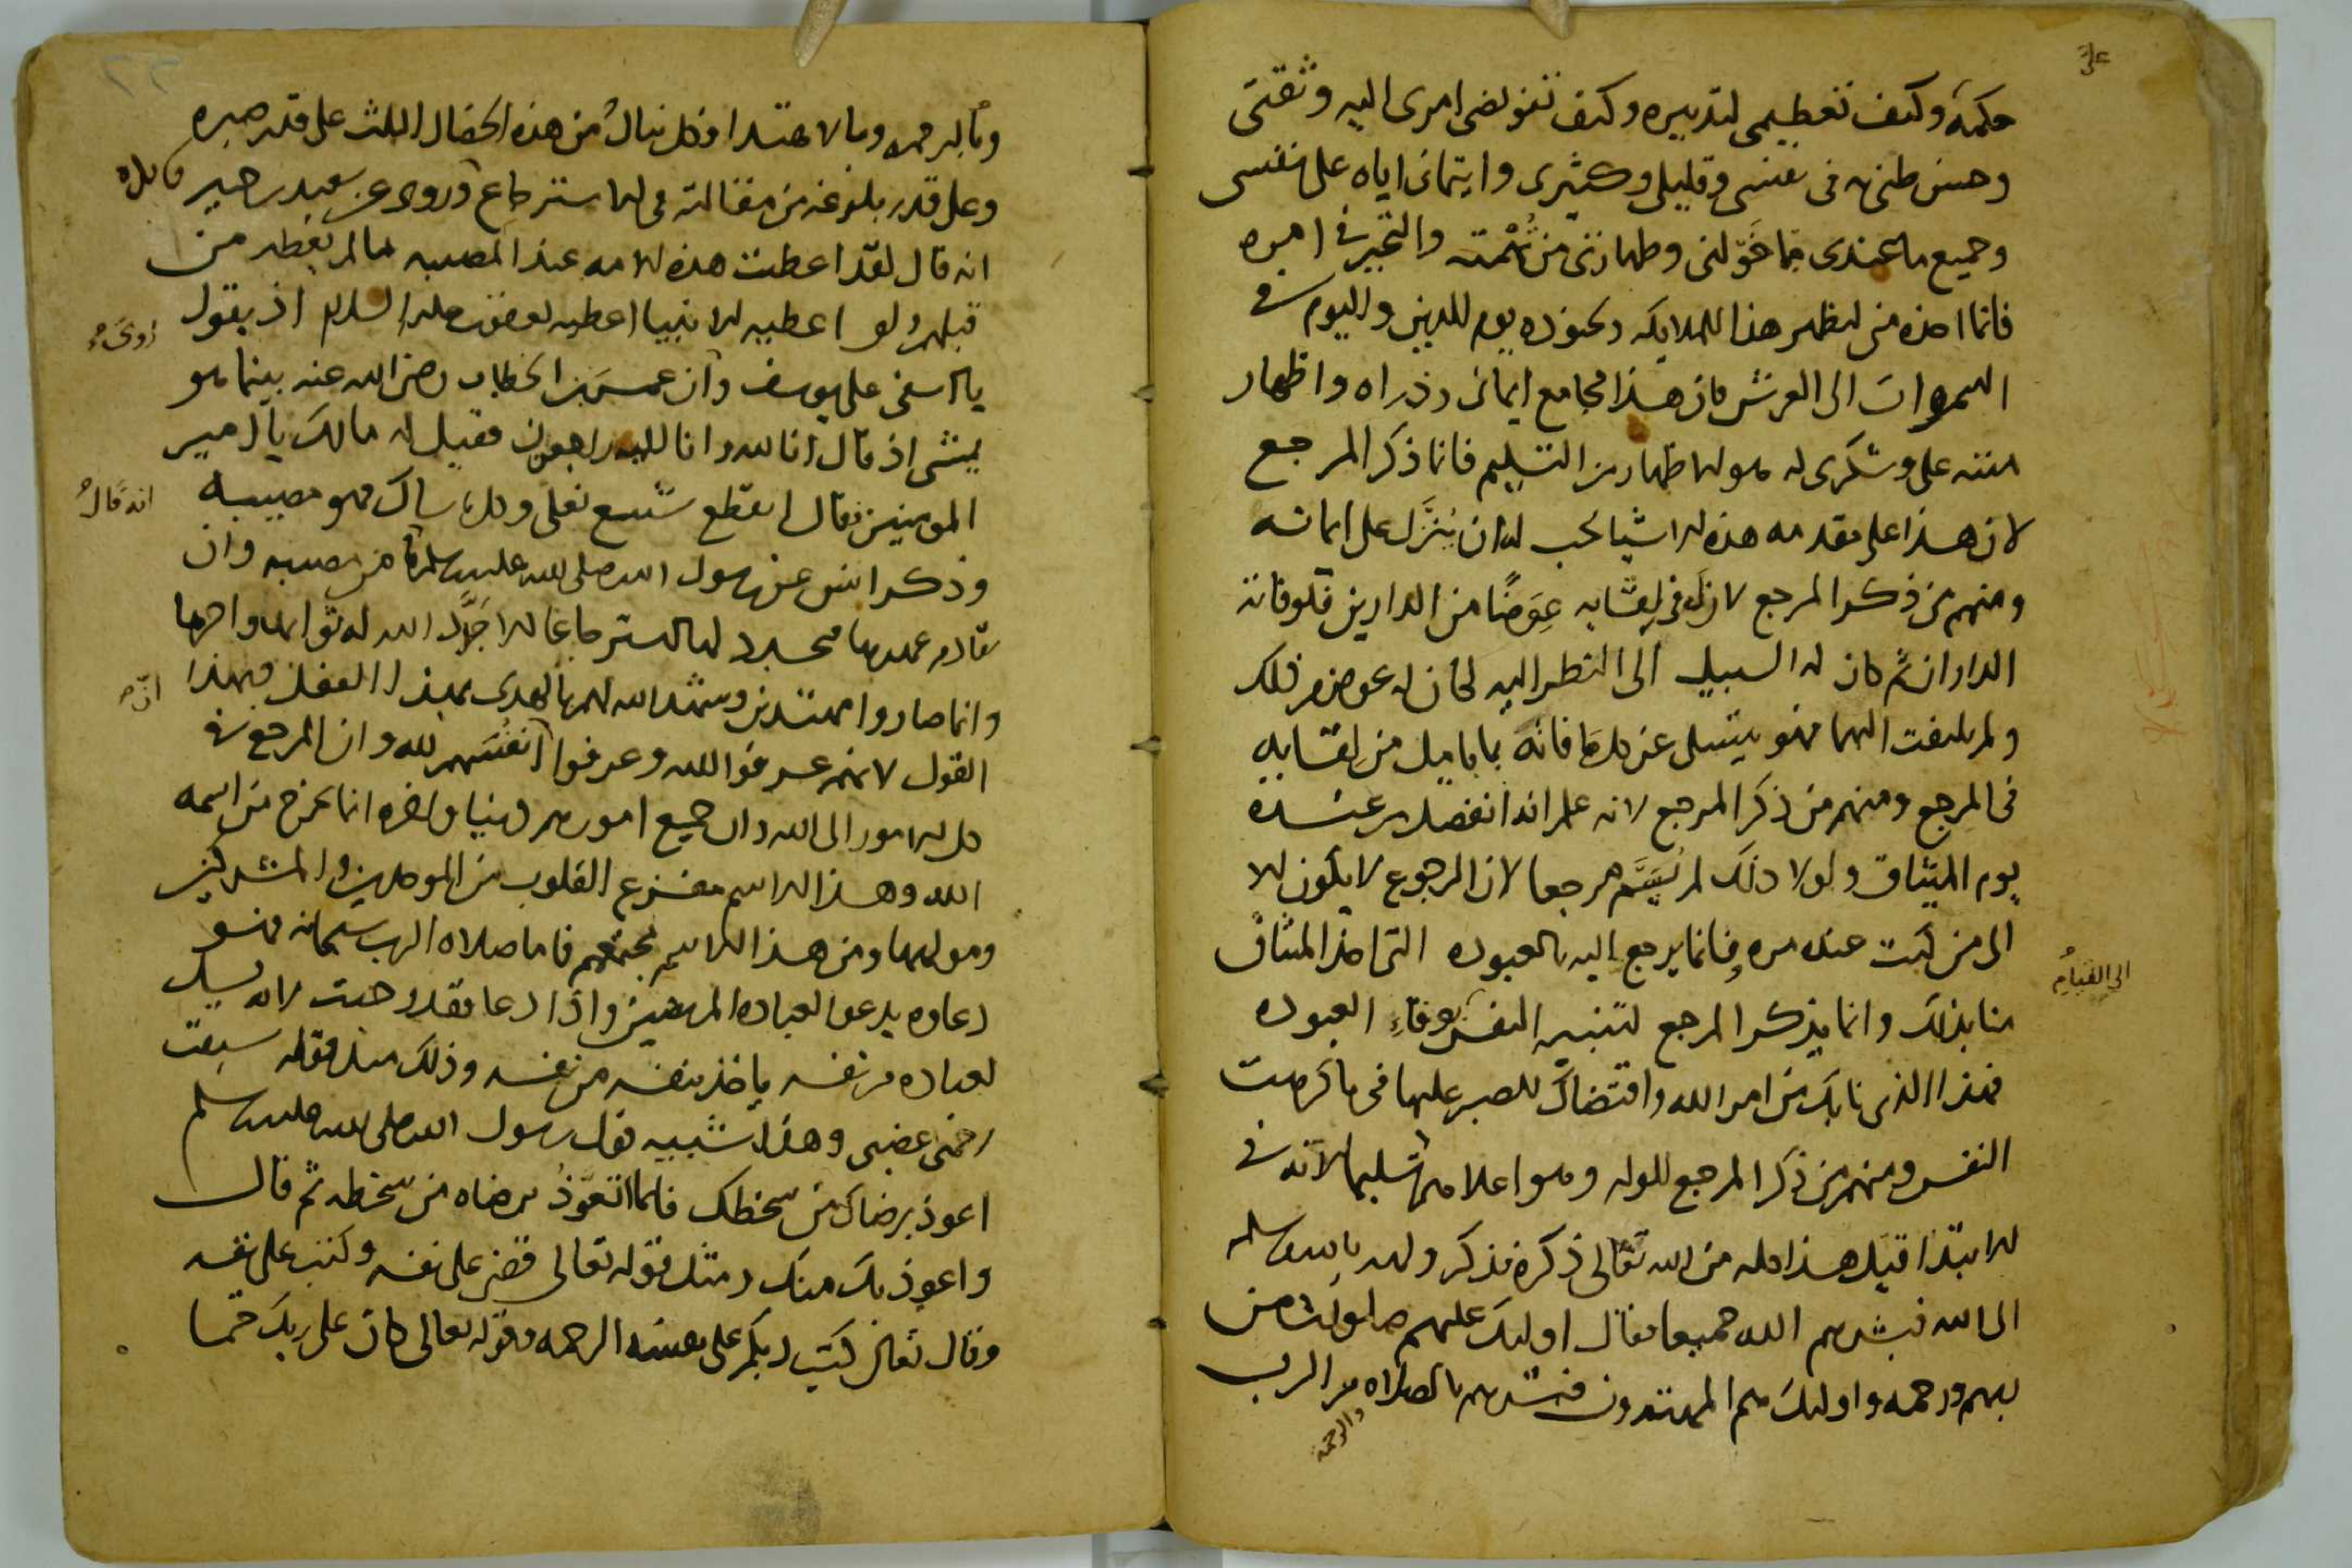 حكمه وكيف تعظيمي لتدبيره وكيف تفويضي امري اليه وثقتي
وحسن ظني به في نفسي وقليلي وكثيري وايتماني اياه على نفسي
وجميع ما عندي مما خولني وطهارتي من تهمته والتحير في امره
فانما اخذه مني ليظهر هذا للملايكه وكنوزه يوم الدين واليوم في
السموات الى العرش فان هذا مجامع ايماني وذراه واظهار
مننه علي وشكري له هو الاظهار من التسليم فانما ذكر المرجع
لان هذا على مقدمه هذه الاشيا يحب ان ينزل على ايمانه
ومنهم من ذكر المرجع لان له في لقايه عوضا من الدارين فلو فاته
الداران ثم كان له السبيل الى النظر اليه لكان له عوض من ذلك
ولم يلتفت اليهما فهو يتسلى عن كل ما فاته بما يامل من لقايه
في المرجع ومنهم من ذكر المرجع لانه علم انه انفصل من عنده
يوم الميثاق ولولا ذلك لم يسم مرجعا لان الرجوع لا يكون الا
الى من كنت عنده مره فانما يرجع اليه بالعبوده التي اخذ الميثاق
الى القيام
منا بذلك وانما يذكر المرجع لتنبيه النفس بوفاء العبوده
فهذا الذي نابك من امر الله واقتضاك للصبر عليها في ما كرهت
النفس ومنهم من ذكر المرجع للوله وهو اعلاهم تسليما لانه في
الابتدا قبل هذا وله من الله تعالى ذكره فذكر وله بالله
الى الله فبشرهم الله جميعا فقال اوليك عليهم صلوات من
ربهم ورحمه واوليك هم المهتدون فبشرهم بالصلاه من الرب
والرحمة
وبالرحمه وبالاهتدا فكل ينال من هذه الخصال الثلث على قدر صبره
وعلى قدر بلوغه من مقالته في الاسترجاع وروي عن سعيد بن جبير
انه قال لقد اعطيت هذه الامه عند المصيبه ما لم يعطه من
قبلهم ولو اعطيه الانبيا اعطيه يعقوب عليه السلام اذ يقول
يا اسفى على يوسف وان عمر بن الخطاب رضي الله عنه بينما هو
يمشي اذ قال انا لله وانا اليه راجعون فقيل له مالك يا امير
المومنين فقال انقطع شسع نعلي وكل ما ساك فهو مصيبه
انه قال
وذكر انس عن رسول الله صلى الله عليه وسلم ما من مصيبه وان
تقادم عهدها فيجدد لها الاسترجاع الا جدد الله له ثوابها واجرها
وانما صاروا مهتدين وشهد الله لهم بالهدى بهذا العقل وبهذا
القول لانهم عرفوا الله وعرفوا ان انفسهم لله وان المرجع في
كل الامور الى الله وان جميع امورهم دنيا واخره انما يخرج من اسمه
الله وهذا الاسم مفزع القلوب من الموحدين والمشركين
ومن هذا الاسم فاما صلاه الرب سبحانه فهو
دعاوه يدعو لعباده المومنين واذا دعا فقد لانه يسل
لعباده من نفسه ياخذ بنفسه من نفسه وذلك مثل قوله سبقت
رحمتي غضبي وهذا شبيه بقول رسول الله صلى الله عليه وسلم
اعوذ برضاك من سخطك فانما تعوذ برضاه من سخطه ثم قال
واعوذ بك منك ومثل قوله تعالى قضى على نفسه وكتب على نفسه
وقال تعالى كتب ربكم على نفسه الرحمه وقوله تعالى كان على ربك حتما